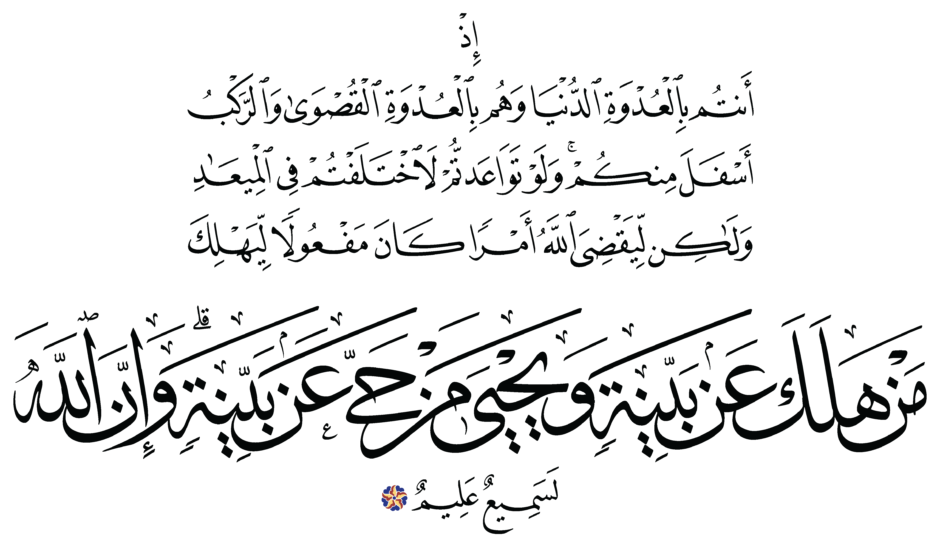 إِذْ
أَنتُم بِٱلْعُدْوَةِ ٱلدُّنْيَا وَهُم بِٱلْعُدْوَةِ ٱلْقُصْوَىٰ وَٱلرَّكْبُ
أَسْفَلَ مِنكُمْ ۚ وَلَوْ تَوَاعَدتُّمْ لَٱخْتَلَفْتُمْ فِى ٱلْمِيعَـٰدِ
وَلَـٰكِن لِّيَقْضِىَ ٱللَّهُ أَمْرًا كَانَ مَفْعُولًا لِّيَهْلِكَ
مَنْ هَلَكَ عَنۢ بَيِّنَةٍ وَيَحْيَىٰ مَنْ حَىَّ عَنۢ بَيِّنَةٍ ۗ وَإِنَّ ٱللَّهَ
لَسَمِيعٌ عَلِيمٌ